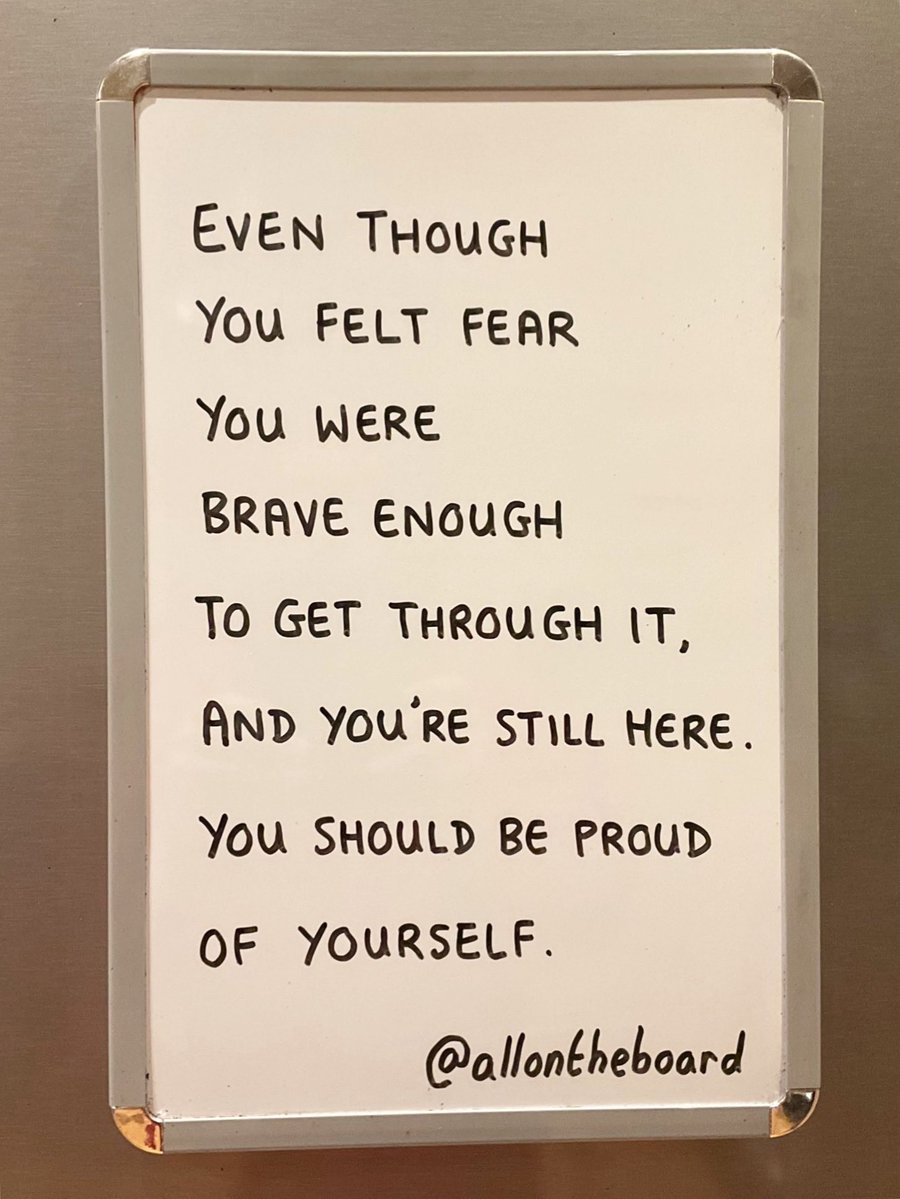 EVEN THOUGH
YOU FELT FEAR
YOU WERE
BRAVE ENOUGH
TO GET THROUGH IT,
AND YOU'RE STILL HERE.
YOU SHOULD BE PROUD
OF YOURSELF.
@allontheboard